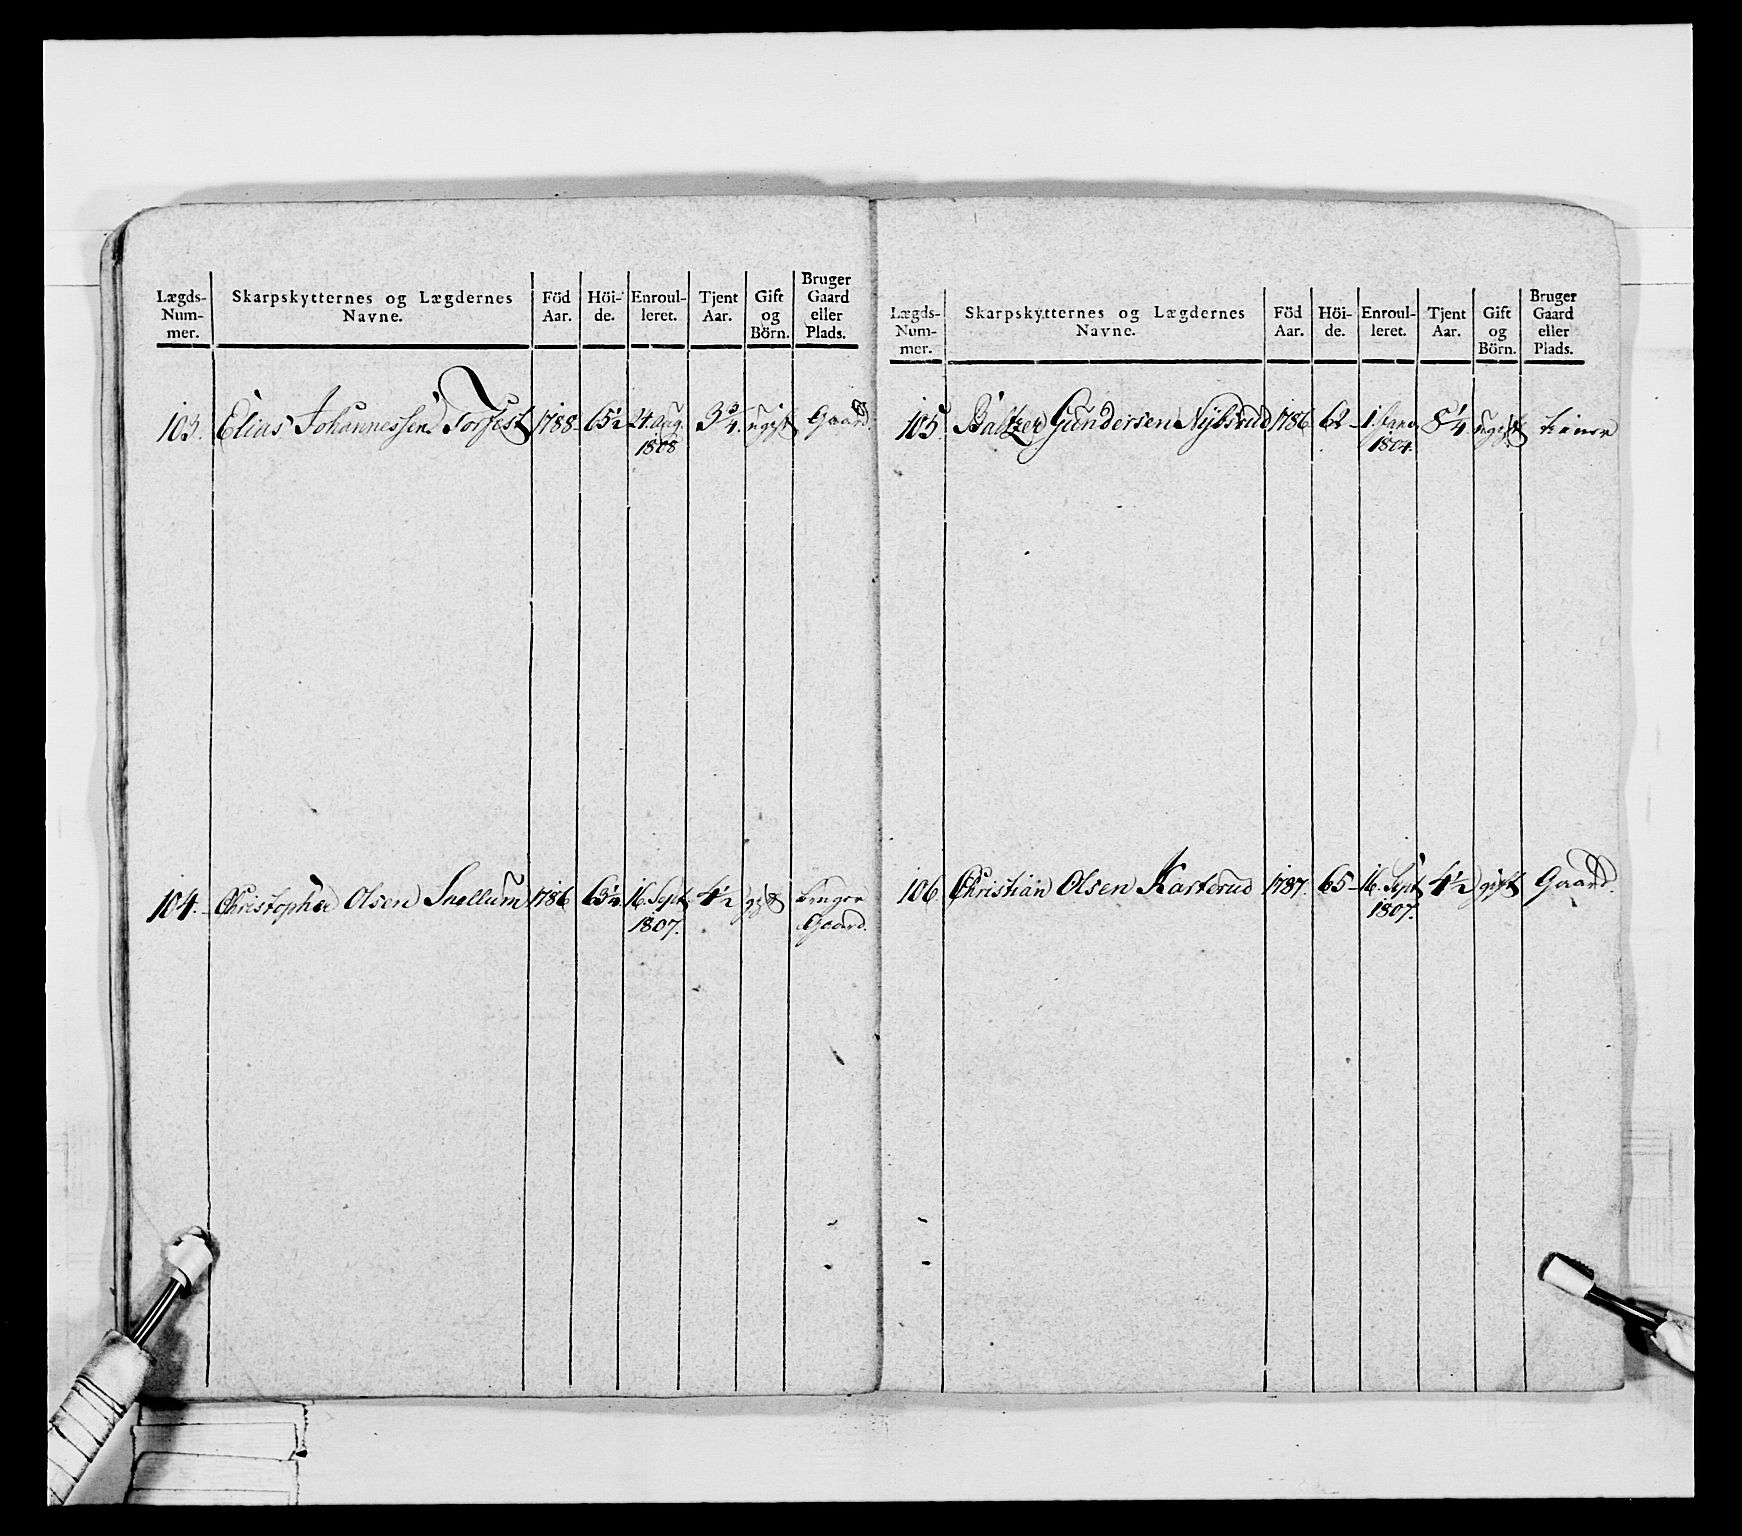 Lægds-Num-mer. Skarpskytternes og Lægdernes Navne. Föd Aar. Höi-de. Enroul-leret. Tjent Aar. Gift og Börn. Bruger Gaard eller Plads.
103. Elias Johannessen Torfest 1788 65½ 24 Aug. 3¾. ugift Gaard.
1808
104. Christopher Olsen Snellum 1786 63¼ 16. Sept. 4½ gift bruger
1807. Gaard.
Lægds-Num-mer. Skarpskytternes og Lægdernes Navne. Föd Aar. Höi-de. Enroul-leret. Tjent Aar. Gift og Börn. Bruger Gaard eller Plads.
105. Baltzer Gundersen Nybsrud 1786 62 1. Janv. 8¼. ugift tiener
1804.
106. Christian Olsen Karterud 1787. 65 16. Sept. 4½ gift Gaard.
1807.